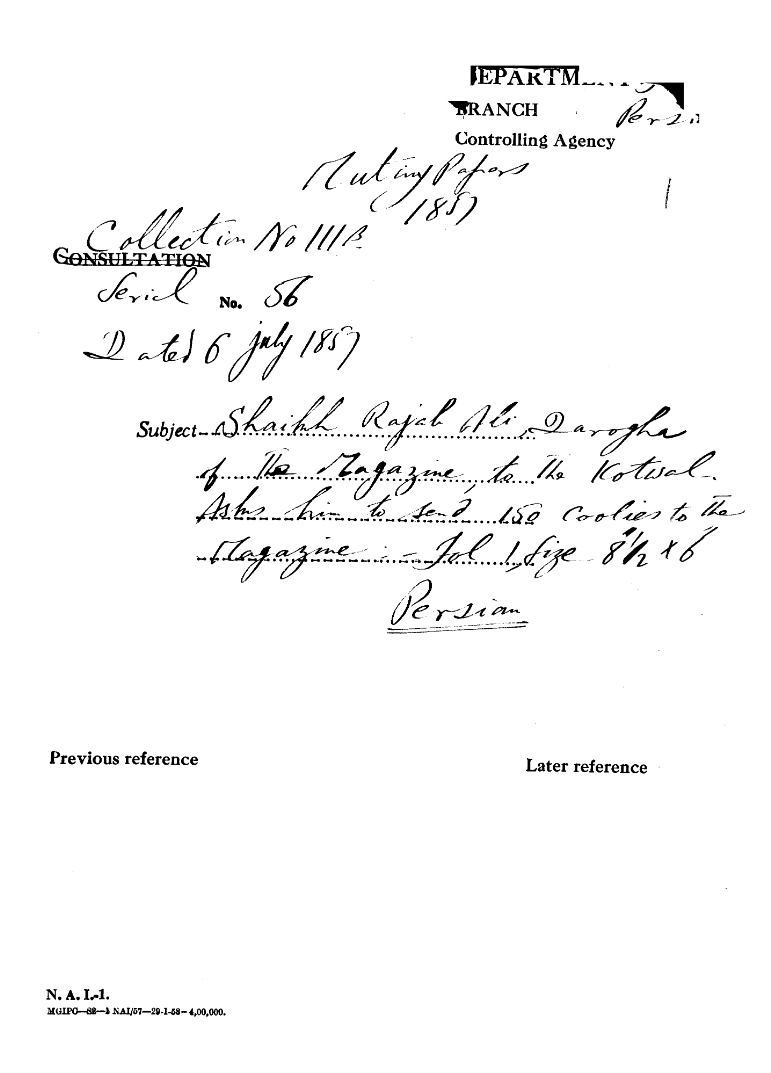 DEPARTMENT
BRANCH
Persi
Controlling Agency
Mutiny Papers
1857
Collection No III B.
CONSULTATION
Serial No. 56
Dated 6 july 1857
Subject Shaikh Rajab Ali, Darogha
of the Magazine, to the Kotwal.
Asks him to send 150 coolies to the
Magazine :- Fol 1, Size 8 1/2 x 6
Persian
Previous reference
Later reference
N. A. I.-1.
MGIPC—S2—1 NAI/57—29-1-58—4,00,000.